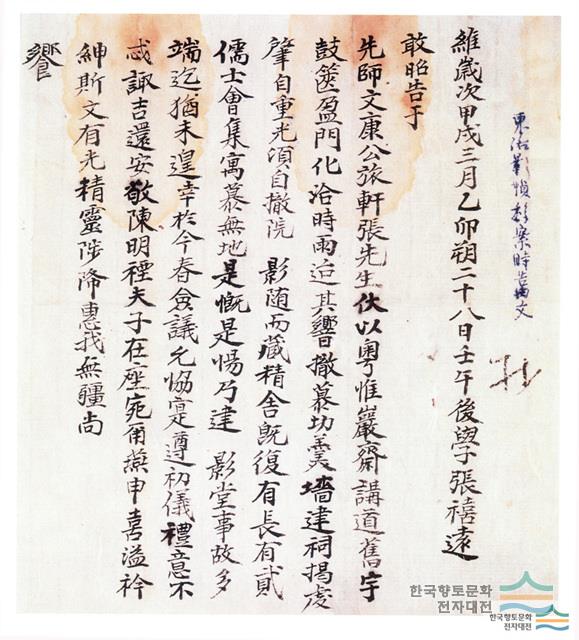 維歲次甲戌三月乙卯朔二十八日壬午後學張禧遠
敢昭告于
先師文康公旅軒張先生伏以粤惟巖齋講道舊宇
鼓篋盈門化洽時雨迨其響撤慕切羹墻建祠揭虔
肇自重光頃自撤院 影随而藏精舍旣復有長有貳
儒士會集寓慕無地是慨是惕乃建 影堂事故多
端迄猶未遑幸於今春僉議允協寔遵初儀禮意不
忒諏吉還安敬陳明禋夫子在座宛爾燕申喜溢衿
紳斯文有光精靈陟降惠我無疆尚
饗
影幀移案時告由文
한국향토문화
전자대전
한국향토문화
전자대전